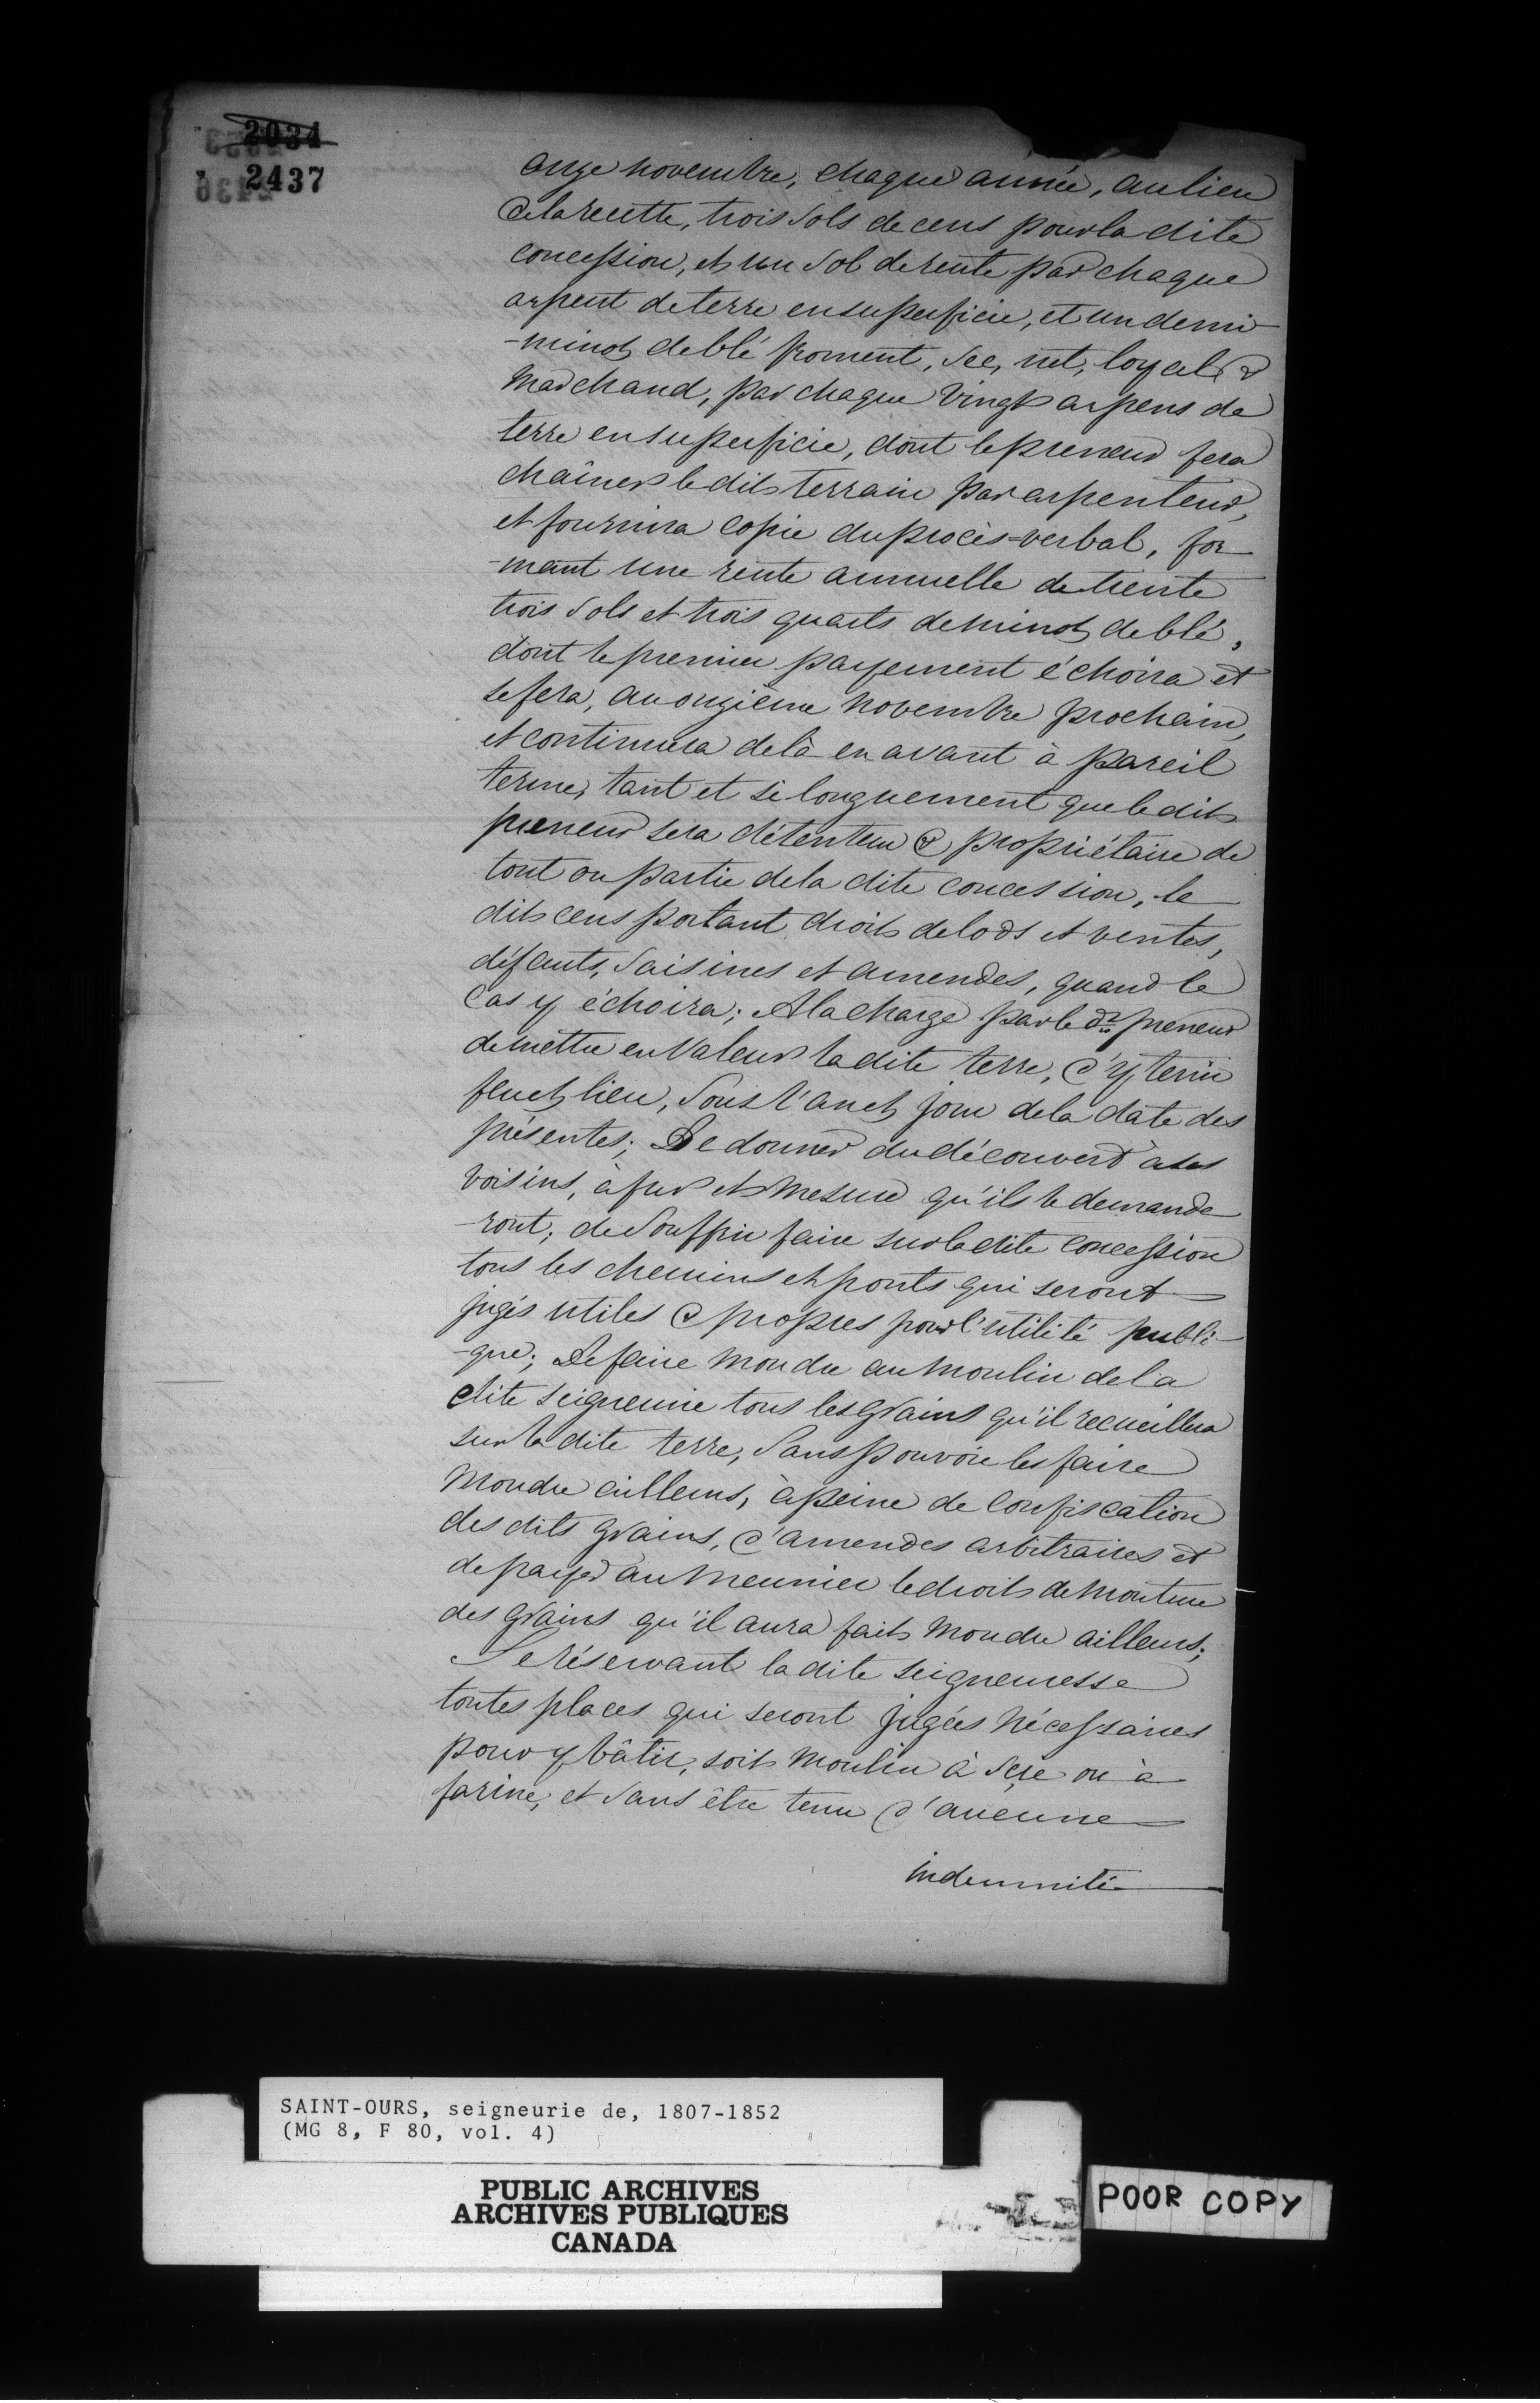 2034
2437
onze novembre, chaque année, au lieu
de la recette, trois sols de cens pour la dite
concession, et un sol de rente par chaque
arpent de terre en superficie, et un demi
-minot de blé froment, sec, net, loyal &
marchand, par chaque vingt arpens de
terre en superficie, dont le preneur fera
chaîner le dit terrain par arpenteur,
et fournira copie du procès=verbal, for
-mant une rente annuelle de trente
trois sols et trois quarts de minot de blé,
dont le premier payement échoira et
se fera, au onzième novembre prochain,
et continuera de là en avant à pareil
terme, tant et si longuement que le dit
preneur sera détenteur & propriétaire de
tout ou partie de la dite concession, le
dit cens portant droit de lods et ventes,
défauts, saisines et amendes, quand le
cas y échoira; A la charge par le dt preneur
de mettre en valeur la dite terre, d'y tenir
feu et lieu, sous l'an et jour de la date des
présentes; De donner du découvert à ses
voisins, à fur et mesure qu'ils le demande
-ront; de souffrir faire sur la dite concession
tous les chemins et ponts qui seront
jugés utiles & propres pour l'utilité publi
-que; De faire moudre au moulin de la
dite seigneurie tous les grains qu'il recueillera
sur la dite terre, sans pouvoir les faire
moudre ailleurs, à peine de confiscation
des dits grains, d'amendes arbitraires et
de payer au meunier le droit de mouture
des grains qu'il aura fait moudre ailleurs;
Se réservant la dite seigneuresse
toutes places qui seront jugées nécessaires
pour y bâtir, soit moulin à scie ou à
farine, et sans être tenu d'aucune
indemnité
SAINT-OURS, seigneurie de, 1807-1852
(MG 8, F 80, vol. 4)
PUBLIC ARCHIVES
ARCHIVES PUBLIQUES
CANADA
POOR COPY